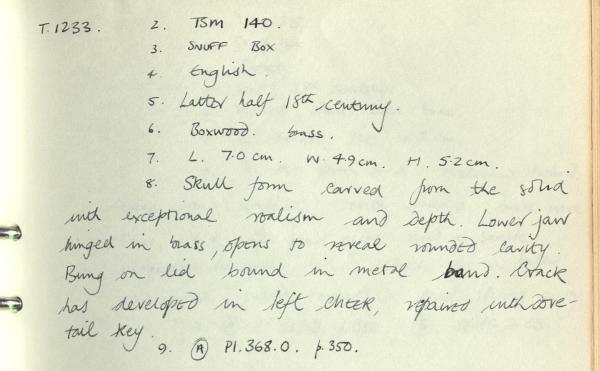 T.1233. 2. TSM 140.
3. SNUFF BOX
4. English.
5. Latter half 18th century.
6. Boxwood. brass.
7. L. 7.0 cm. W. 4.9 cm. H. 5.2 cm.
8. Skull form carved from the solid
with exceptional realism and depth. Lower jaw
hinged in brass, opens to reveal rounded cavity.
Bung on lid bound in metal band. Crack
has developed in left cheek, repaired with dove-
tail key.
9. (A) Pl. 368.0. p.350.